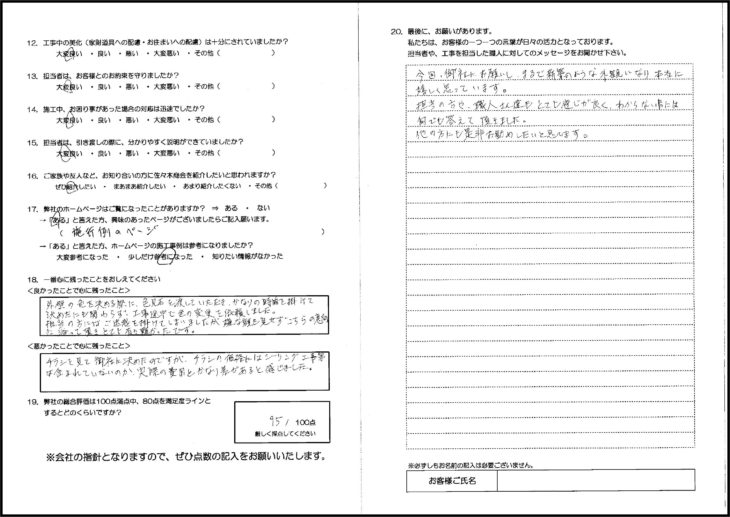 12. 工事中の美化（家財道具への配慮・お住まいへの配慮）は十分にされていましたか？
大変良い ・良い ・悪い ・大変悪い ・その他（ ）
13. 担当者は、お客様とのお約束を守りましたか？
大変良い ・良い ・悪い ・大変悪い ・その他（ ）
14. 施工中、お困り事があった場合の対応は迅速でしたか？
大変良い ・良い ・悪い ・大変悪い ・その他（ ）
15. 担当者は、引き渡しの際に、分かりやすく説明ができていましたか？
大変良い ・良い ・悪い ・大変悪い ・その他（ ）
16. ご家族や友人など、お知り合いの方に佐々木商会を紹介したいと思われますか？
ぜひ紹介したい ・まあまあ紹介したい ・あまり紹介したくない ・その他（ ）
17. 弊社のホームページはご覧になったことがありますか？ ⇒ ある ・ ない
→「ある」と答えた方、興味のあったページがございましたらご記入願います。
（ 施行例のページ ）
→「ある」と答えた方、ホームページの施工事例は参考になりましたか？
大変参考になった ・少しだけ参考になった ・知りたい情報がなかった
18. 一番心に残ったことをおしえてください
＜良かったことで心に残ったこと＞
外壁の色を決める際に、色見本を渡していただき、かなりの時間を掛けて
決めたにも関わらず、工事途中で色の変更を依頼しました。
担当の方にはご迷惑を掛けてしまいましたが、嫌な顔も見せずこちらの意向
に沿って頂きとても有り難かったです。
＜悪かったことで心に残ったこと＞
チラシを見て御社に決めたのですが、チラシの価格にはシーリング工事等
は含まれていないのか、実際の費用とかなり差があると感じました。
19. 弊社の総合評価は100点満点中、80点を満足度ラインと
するとどのくらいですか？
95/100点
厳しく採点してください
※会社の指針となりますので、ぜひ点数の記入をお願いいたします。
20. 最後に、お願いがあります。
私たちは、お客様の一つ一つの言葉が日々の活力となっております。
担当者や、工事を担当した職人に対してのメッセージをお聞かせ下さい。
今回、御社にお願いし、まるで新築のような外観になり本当に
嬉しく思っています。
担当の方も、職人さん達もとても感じが良く、わからない事には
何でも答えて頂きました。
他の方にも是非お勧めしたいと思います。
※必ずしもお名前の記入は必要ございません。
お客様ご氏名